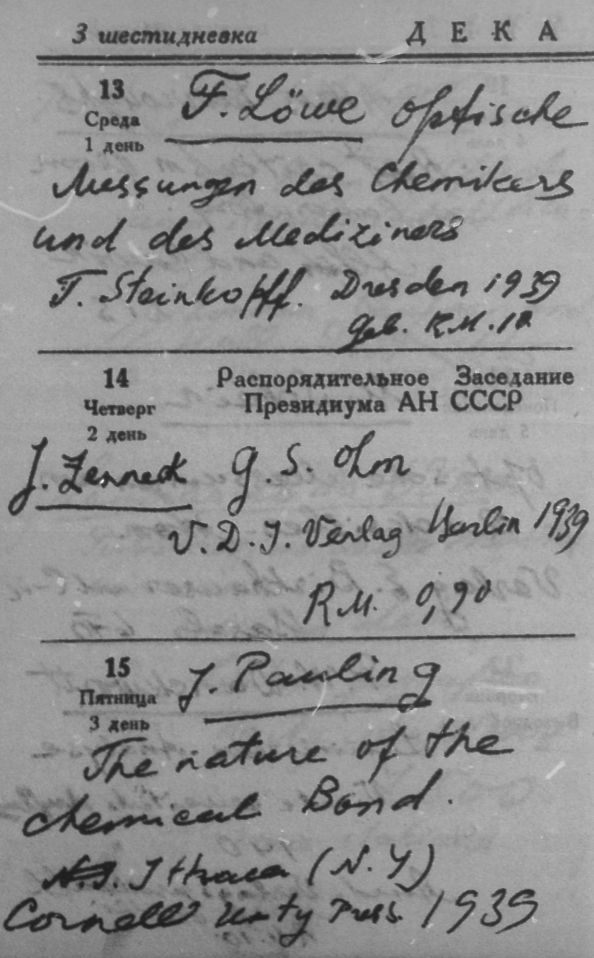 3 шестидневка ДЕКА
13
Среда
1 день
F. Löwe optische
Messungen des Chemikers
und des Mediziners
T. Steinkopff. Dresden 1939
geb. R.M.
14
Четверг
2 день
Распорядительное Заседание
Президиума АН СССР
J. Zenneck G. S. Ohm
V. D. I. Verlag Berlin 1939
R.M. 0,90
15
Пятница
3 день
J. Pauling
The nature of the
chemical Bond.
Ithaca (N. Y)
Cornell Unty Press 1939